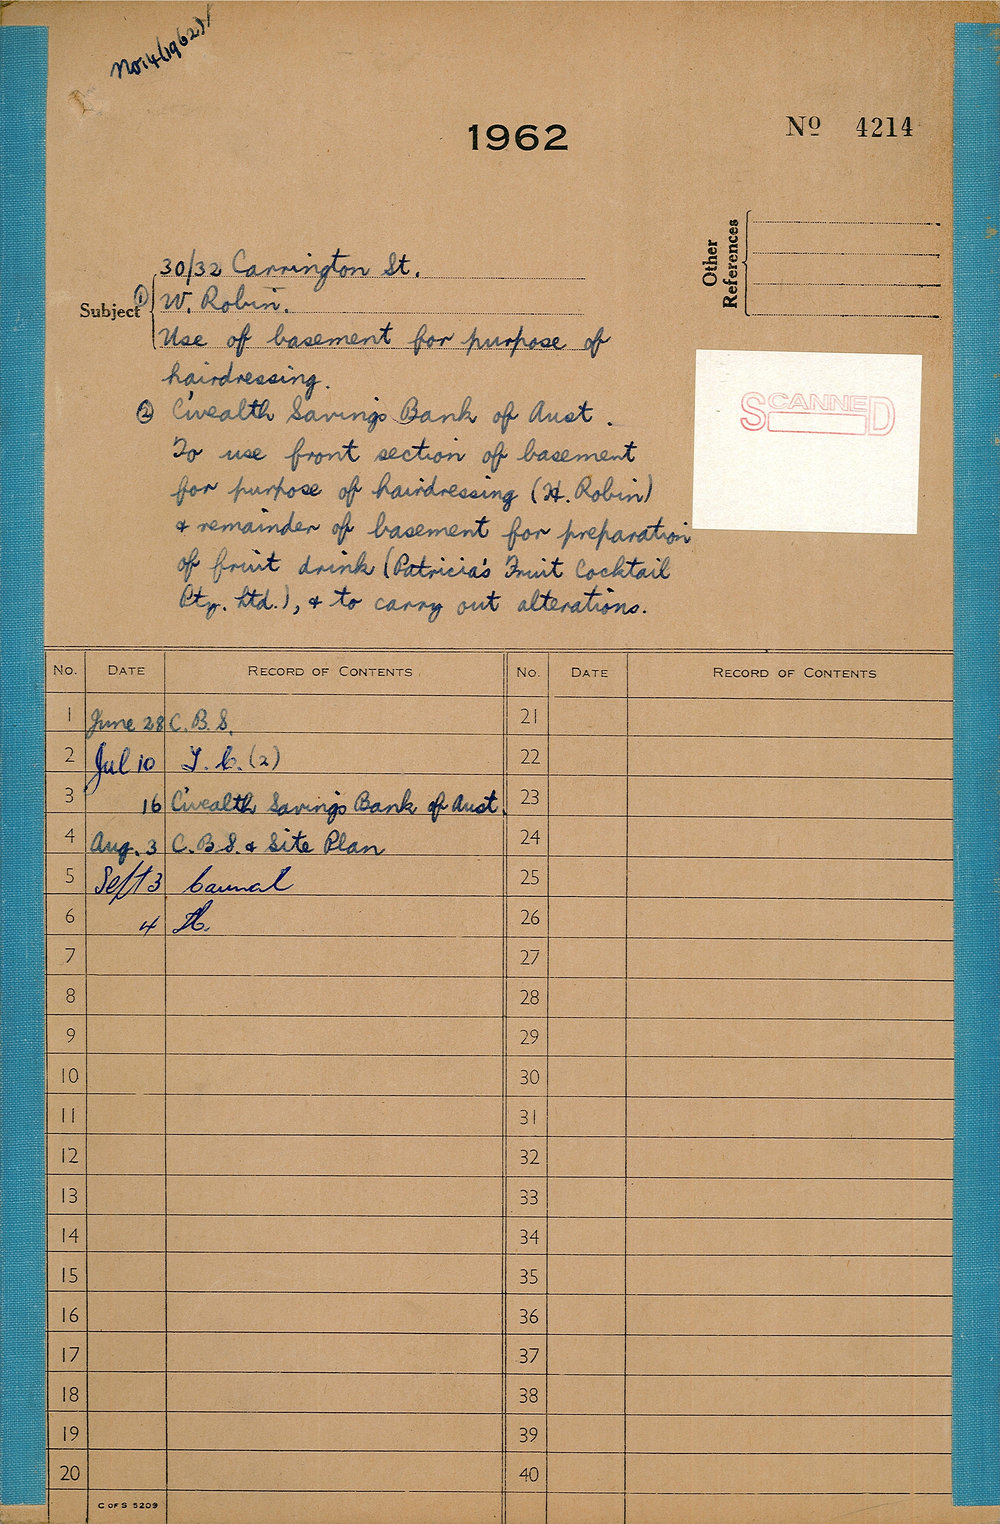 No.14(1962)
1962
Nº 4214
Other References
Subject
① 30/32 Carrington St.
W. Robin.
Use of basement for purpose of
hairdressing.
② C'wealth Savings Bank of Aust.
To use front section of basement
for purpose of hairdressing (H. Robin)
& remainder of basement for preparation
of fruit drink (Patricia's Fruit Cocktail
Pty. Ltd.), & to carry out alterations.
SCANNED
No. DATE RECORD OF CONTENTS No. DATE RECORD OF CONTENTS
1 June 28 C.B.S. 21
2 Jul 10 (2) 22
3 16 C'wealth Savings Bank of Aust. 23
4 Aug. 3 C.B.S. & Site Plan 24
5 Sept 3 25
6 4 26
7 27
8 28
9 29
10 30
11 31
12 32
13 33
14 34
15 35
16 36
17 37
18 38
19 39
20 40
C OF S 5209